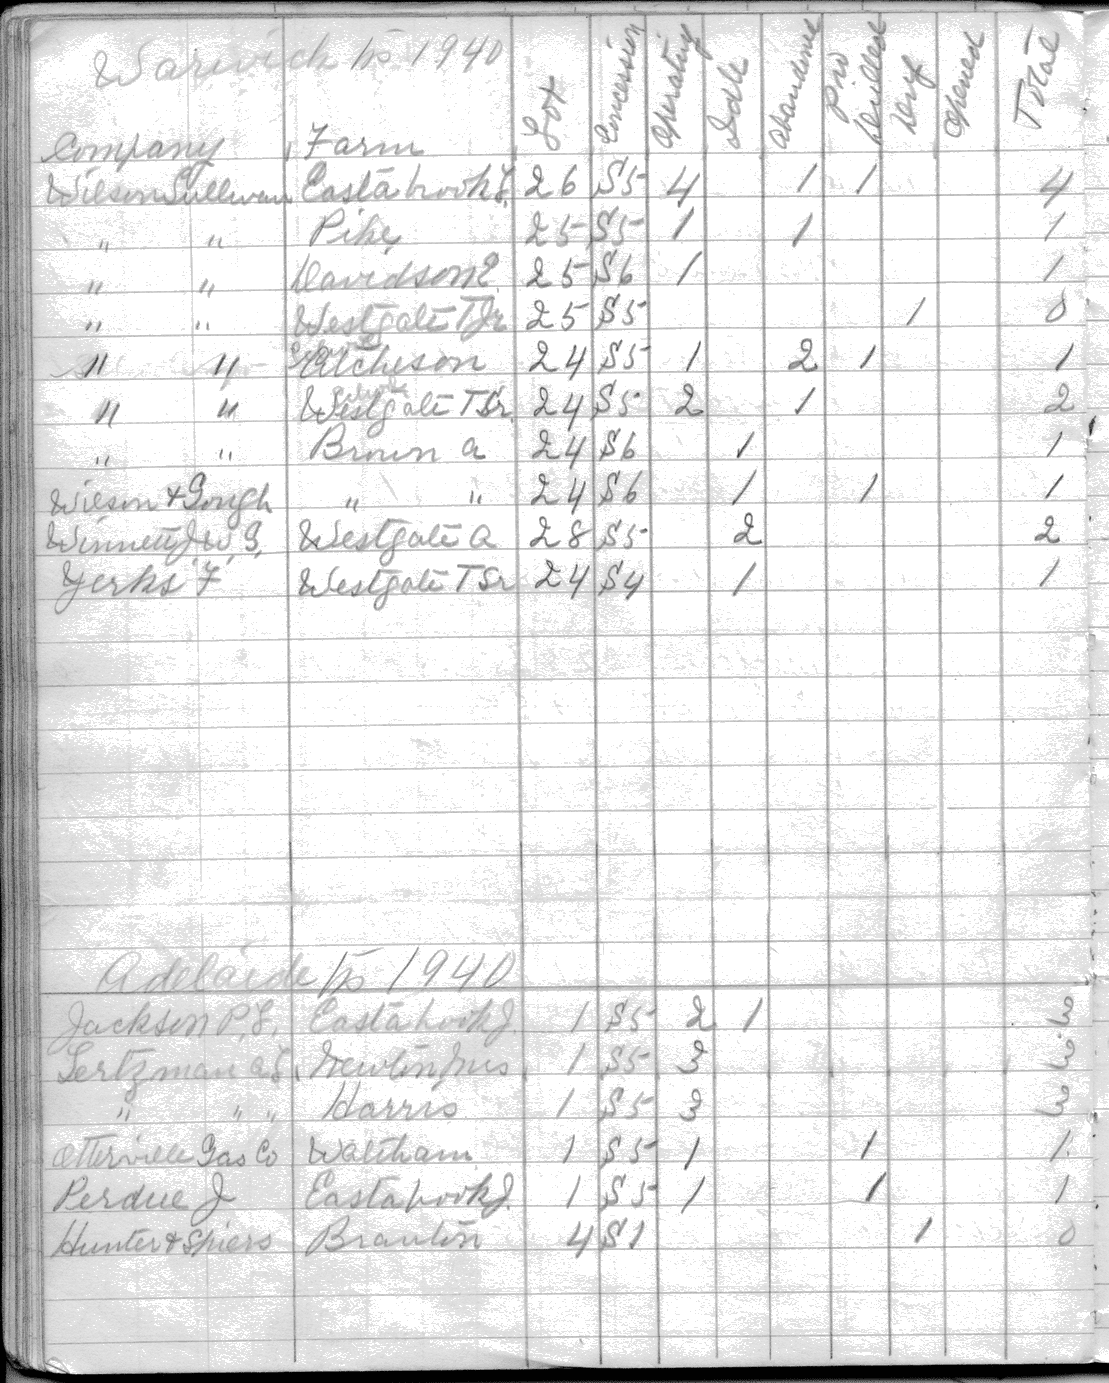 Warwick Tp 1940
Company Farm Lot Concession Operating Idle Abandoned Pro Drilled Dry Opened Total
Wilson Sullivan Eastabrook J. 26 S5 4 1 1 4
" " Pike 25 S5 1 1 1
" " Davidson E. 25 S6 1 1
" " Westgate T Jr 25 S5 1 0
" " Aitcheson 24 S5 1 2 1 1
" " Westgate T Sr. 24 S5 2 1 2
" " Brown a 24 S6 1 1
Wilson & Gough " " 24 S6 1 1 1
Winnett J W G. Westgate a 28 S5 2 2
Yerks F Westgate T Sr 24 S4 1 1
Adelaide Tp 1940
Jackson P. L. Eastabrook J. 1 S5 2 1 3
Lertzman Newton 1 S5 3 3
" " " Harris 1 S5 3 3
Otterville Gas Co Waltham 1 S5 1 1 1.
Perdue J Eastabrook J. 1 S5 1 1 1
Hunter & Spiers Branton 4 S1 1 0